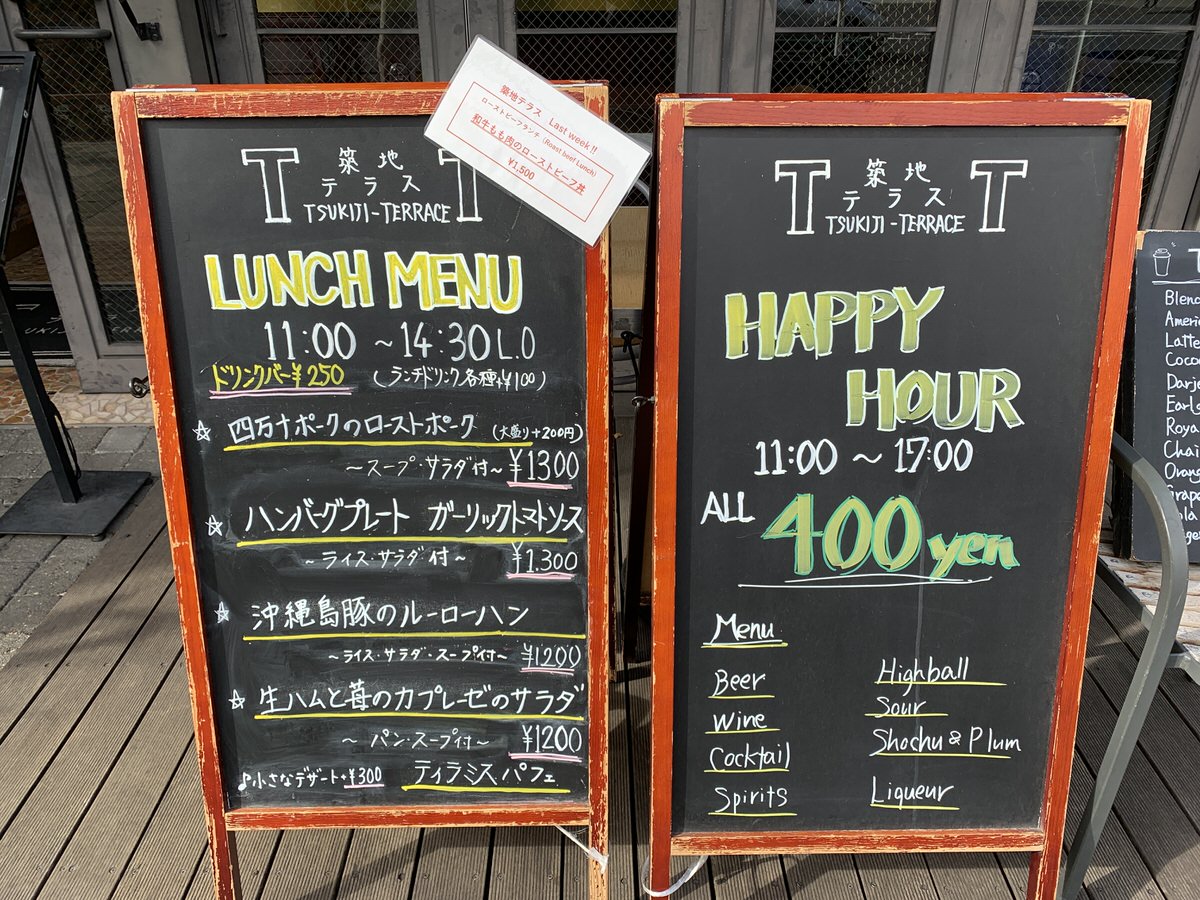 築地テラス Last week!!
ローストビーフランチ (Roast beef Lunch)
和牛もも肉のローストビーフ丼
¥1,500
T 築地 T
テラス
TSUKIJI-TERRACE
LUNCH MENU
11:00 ~14:30 L.O
ドリンクバー¥250 (ランチドリンク各種+¥100)
☆ 四万十ポークのローストポーク (大盛り+200円)
~スープ・サラダ付~ ¥1300
☆ ハンバーグプレート ガーリックトマトソース
~ライス・サラダ付~ ¥1.300
☆ 沖縄島豚のルーローハン
~ライス・サラダ・スープ付~ ¥1200
☆ 生ハムと苺のカプレーゼのサラダ
~パン・スープ付~ ¥1200
♪小さなデザート+¥300 ティラミスパフェ
T 築地 T
テラス
TSUKIJI-TERRACE
HAPPY
HOUR
11:00 ~ 17:00
ALL 400 yen
Menu
Beer
Wine
Cocktail
Spirits
Highball
Sour
Shochu & Plum
Liqueur
T
Blen
Ameri
Latte
Coco
Darje
Earl
Roya
Chai
Oran
Grape